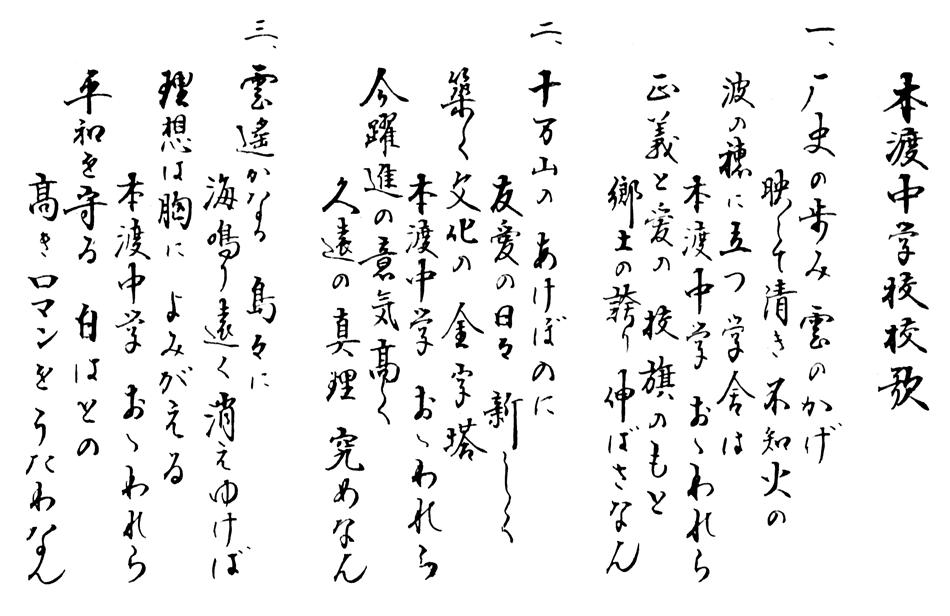 本渡中学校校歌
一、
厂史の歩み 雲のかげ
映して清き 不知火の
波の穂に立つ 学舎は
本渡中学 おゝわれら
正義と愛の 校旗のもと
郷土の誇り 伸ばさなん
二、
十万山の あけぼのに
友愛の日々 新しく
築く文化の 金字塔
本渡中学 おゝわれら
今躍進の意気高く
久遠の真理 究めなん
三、
雲遙かなる 島々に
海鳴り遠く 消えゆけば
理想は胸に よみがえる
本渡中学 おゝわれら
平和を守る 白はとの
高きロマンをうたわなん